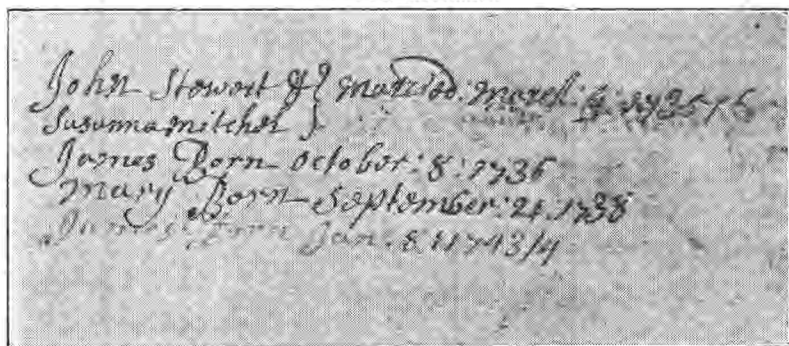 John Stewart & } married: march: 4: 1735/6
Susanna mitchel }
James Born october: 8: 1736
Mary Born September: 21: 1738
James Born Jan: 8: 1743/4